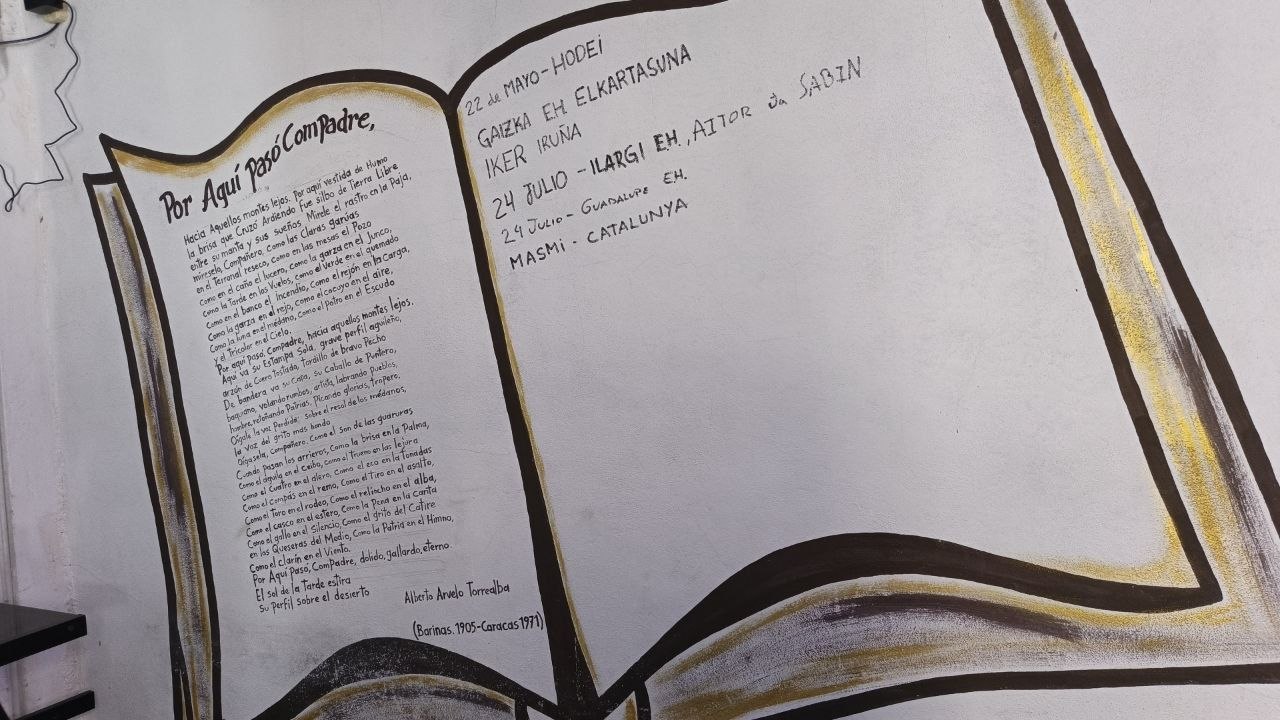 Por Aquí pasó Compadre,
Hacia Aquellos montes lejos. Por aquí vestida de Humo
la brisa que Cruzó Ardiendo Fue silbo de Tierra Libre
entre su manta y sus sueños. Mirele el rastro en la Paja,
mireselo, Compañero, como las Claras garúas
en el Terronal reseco, como en las mesas el Pozo
como en el caño el lucero, como la garza en el Junco,
como la Tarde en los Vuelos, como el Verde en el quemado
como en el banco el incendio, Como el rejón en la Carga,
como la garza en el rejo, como el cocuyo en el aire,
como la luna en el médano, Como el Potro en el Escudo
y el Tricolor en el Cielo.
Por aquí Paso, Compadre, hacia aquellos montes lejos.
Aquí va su Estampa Sola, grave perfil aguileño,
arzón de Cuero Tostado, Tordillo de bravo Pecho
De bandera va su Capa, su Caballo de Puntero,
baquiano, volando rumbos, artista, labrando pueblos,
hombre, retoñando Patrias, Picando glorias, tropero.
Oigale la voz Perdida: sobre el resol de los médanos,
la Voz del grito mas hondo
Oigasela, compañero, Como el Son de las guaruras
Cuando pasan los arrieros, Como la brisa en la Palma,
Como el águila en el Ceibo, como el Trueno en las lejura
Como el Cuatro en el alero, Como el eco en la Tonadas
Como el compás en el remo, Como el Tiro en el asalto,
Como el Toro en el rodeo, Como el relincho en el alba,
Como el casco en el estero, Como la Pena en la canta
Como el gallo en el Silencio, Como el grito del Catire
en las Queseras del Medio, Como la Patria en el Himno,
Como el clarín en el Viento.
Por Aquí Paso, Compadre, dolido, gallardo, eterno.
El sol de la Tarde estira
su Perfil sobre el desierto
Alberto Arvelo Torrealba
(Barinas. 1905-Caracas 1971)
22 de MAYO - HODEi
GAIZKA EH ELKARTASUNA
IKER IRUÑA
24 JULIO - ILARGI EH., AITOR Ja SABIN
24 JULIO - GUADALUPE EH.
MASMi - CATALUNYA